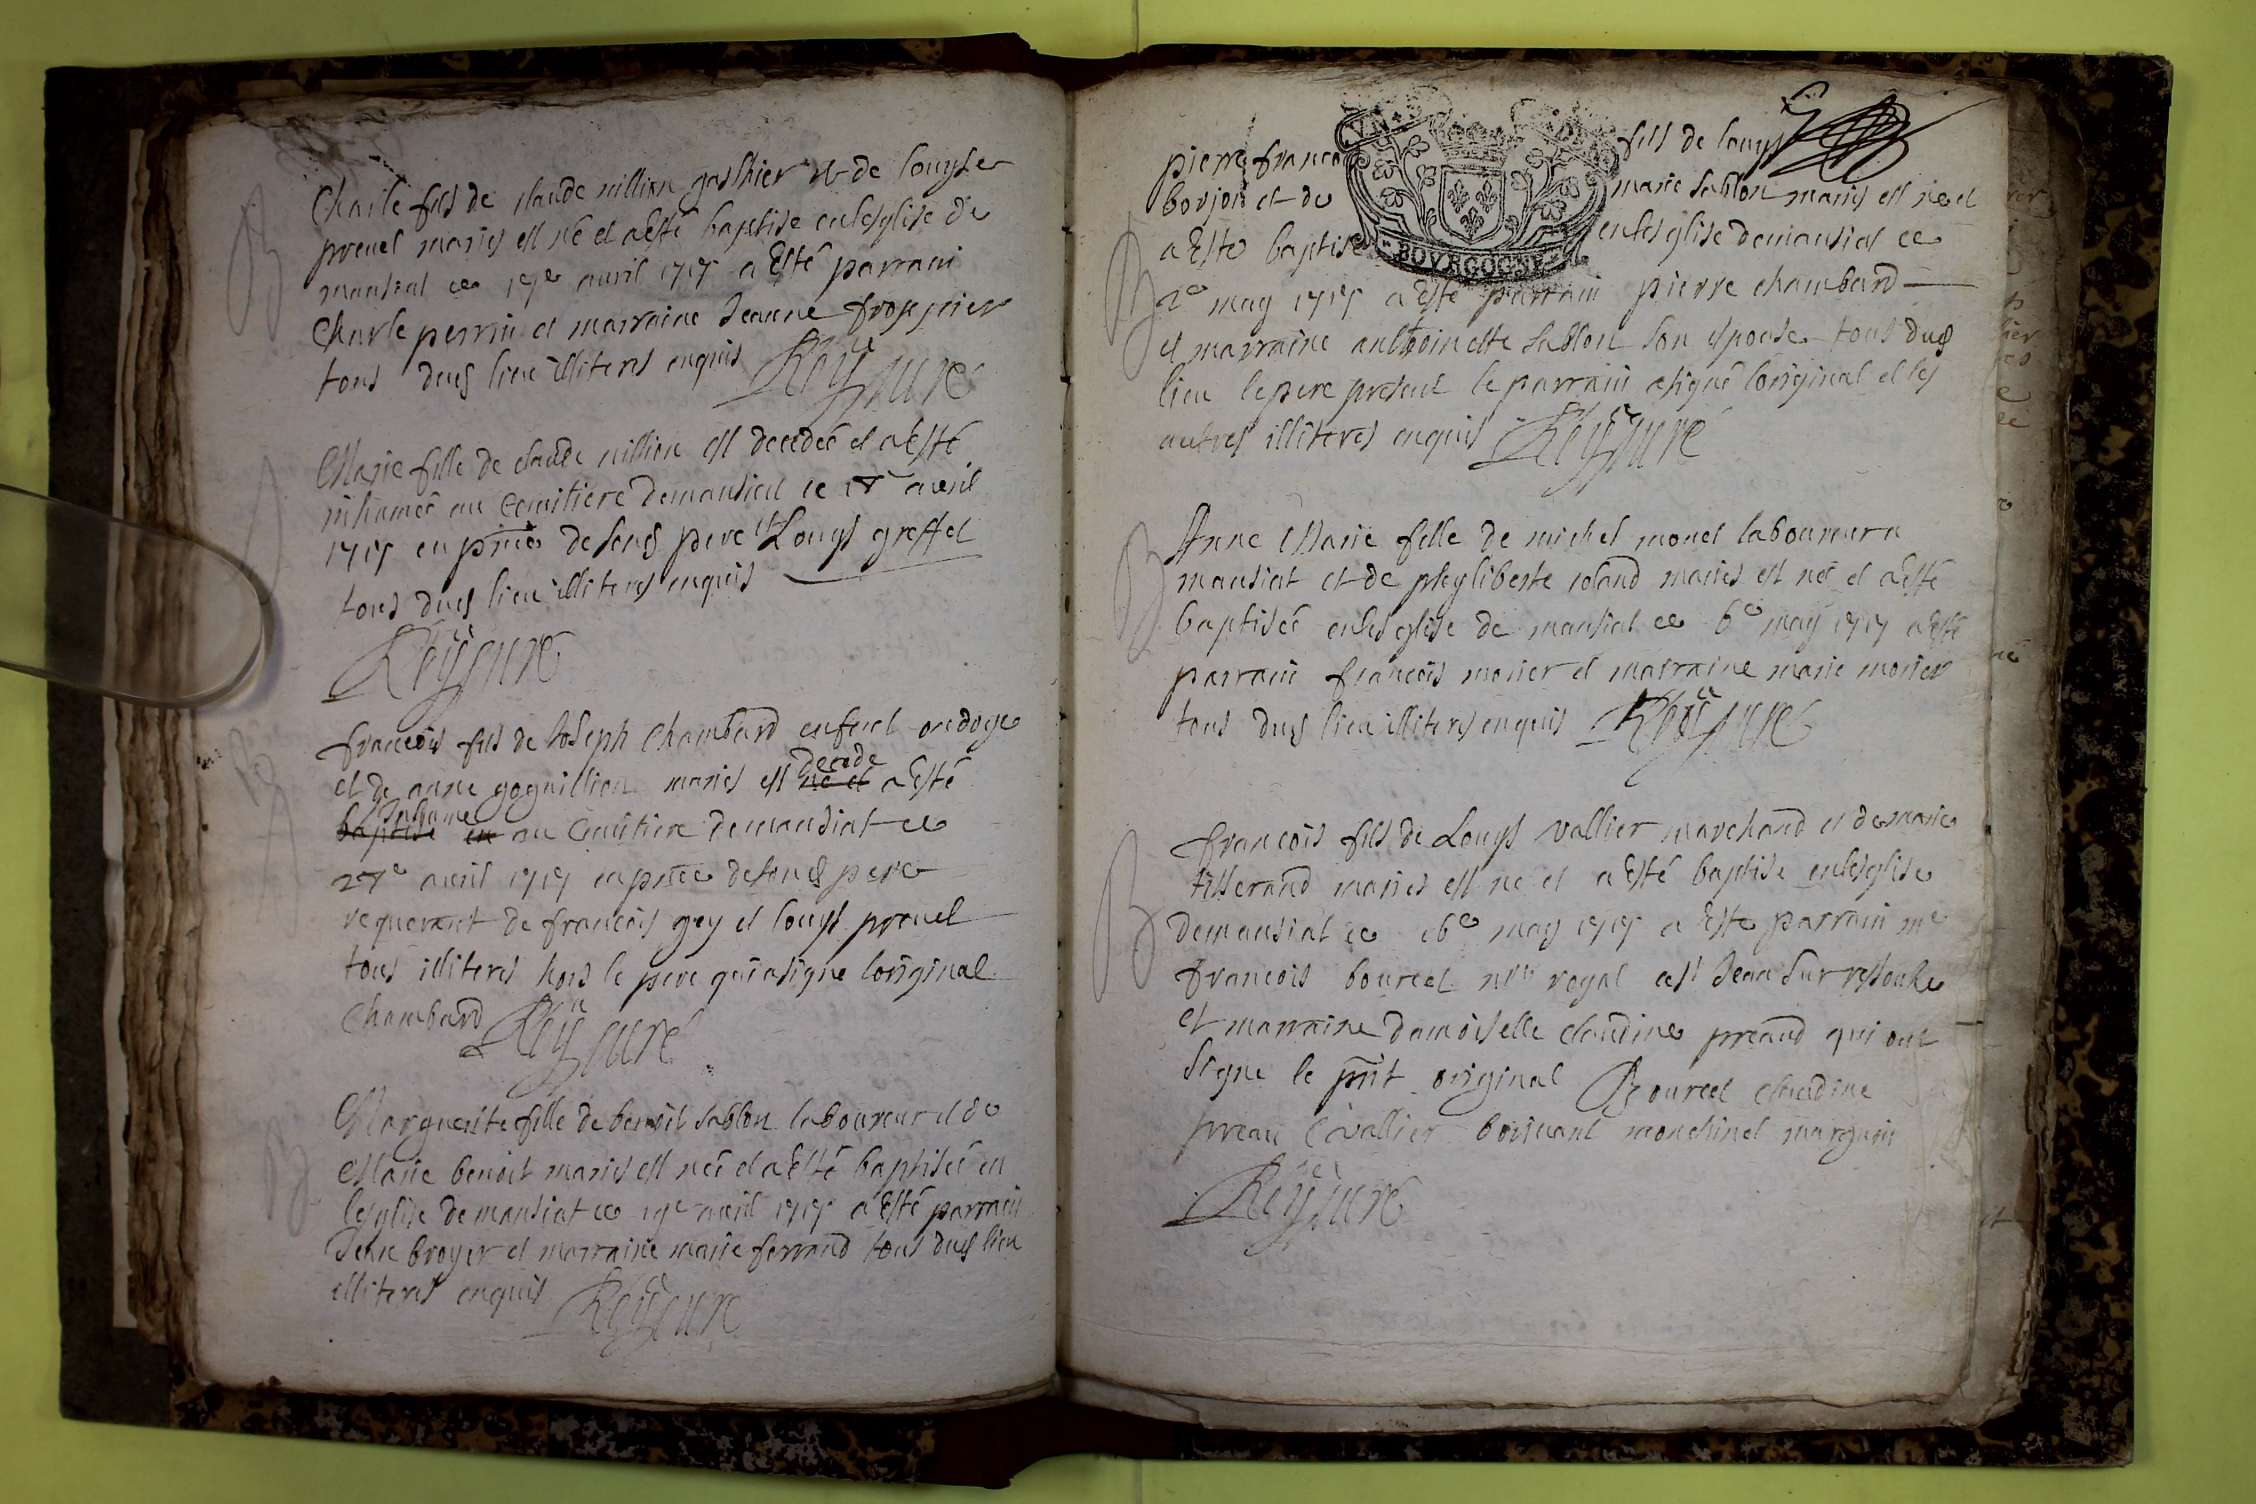 Charle fils de claude nillion et de louyse
prevel mariés est né et a Esté baptise en lesglise de
mansiat ce avril a Esté parrain
Charle perrin et marraine Jeanne
tous dud lieu illiteres enquis Rey curé
B
Marie fille de claude nillion est decedeé et a Esté
inhumeé au Cemitiere de mansiat ce avril
en pnce de sond pere Louys greffet
tous dud lieu illiteres enquis
Rey curé
francois fils de Joseph Chambard
et de anne goguillion mariés est né et decede a Esté
baptise en Inhumé au Cemitiere de mansiat ce
27e avril en pnce de sond pere
requerant de francois gey et louys prevel
tous illiteres hors le pere qui a signé loriginal
Chambard Rey curé
B
Marguerite fille de benoit sablon laboureur et de
Marie benoit mariés est neé et a Esté baptiseé en
lesglise de mansiat ce avril a Esté parrain
Jean broyer et marraine marie ferrand tous dud lieu
illiteres enquis Rey curé
B
pierre francois fils de louys
borjon et de marie sablon mariés est né et
a Esté baptise en lesglise de mansiat ce
2e may a Esté parrain pierre chambard
et marraine anthoinette sablon son espouse tous dud
lieu le pere present le parrain a signé loriginal et les
autres illiteres enquis Rey curé
BOVRGOGNE
B
Anne Marie fille de michel monet laboureur a
mansiat et de phyliberte roland mariés est neé et a Esté
baptiseé en lesglise de mansiat ce 6e may a Esté
parrain francois morier et marraine marie morier
tous dud lieu illiteres enquis Rey curé
B
francois fils de Louys vallier marchand et de marie
tisserand mariés est né et a Esté baptise en lesglise
de mansiat ce may a Esté parrain me
francois bourcet royal a st Jean sur ressouhe
et marraine damoiselle claudine preaud qui ont
signe le pnt original Bourcet claudine
preau vallier
Rey curé